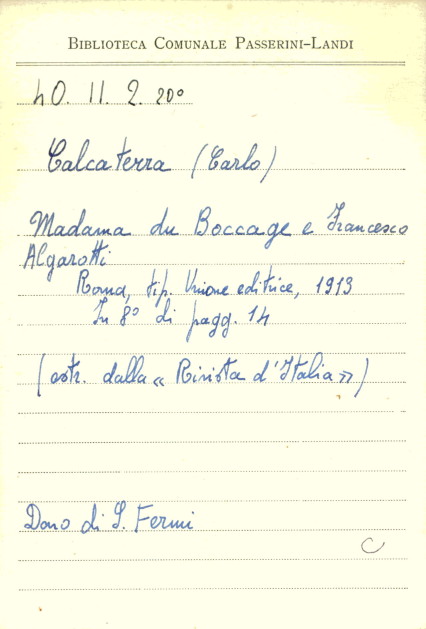 BIBLIOTECA COMUNALE PASSERINI-LANDI
40. II. 2. 20°
Calcaterra (Carlo)
Madama du Boccage e Francesco
Algarotti
Roma, tip. Unione editrice, 1913
In 8° di pagg. 14
(estr. dalla « Rivista d'Italia »)
Dono di S. Fermi
C